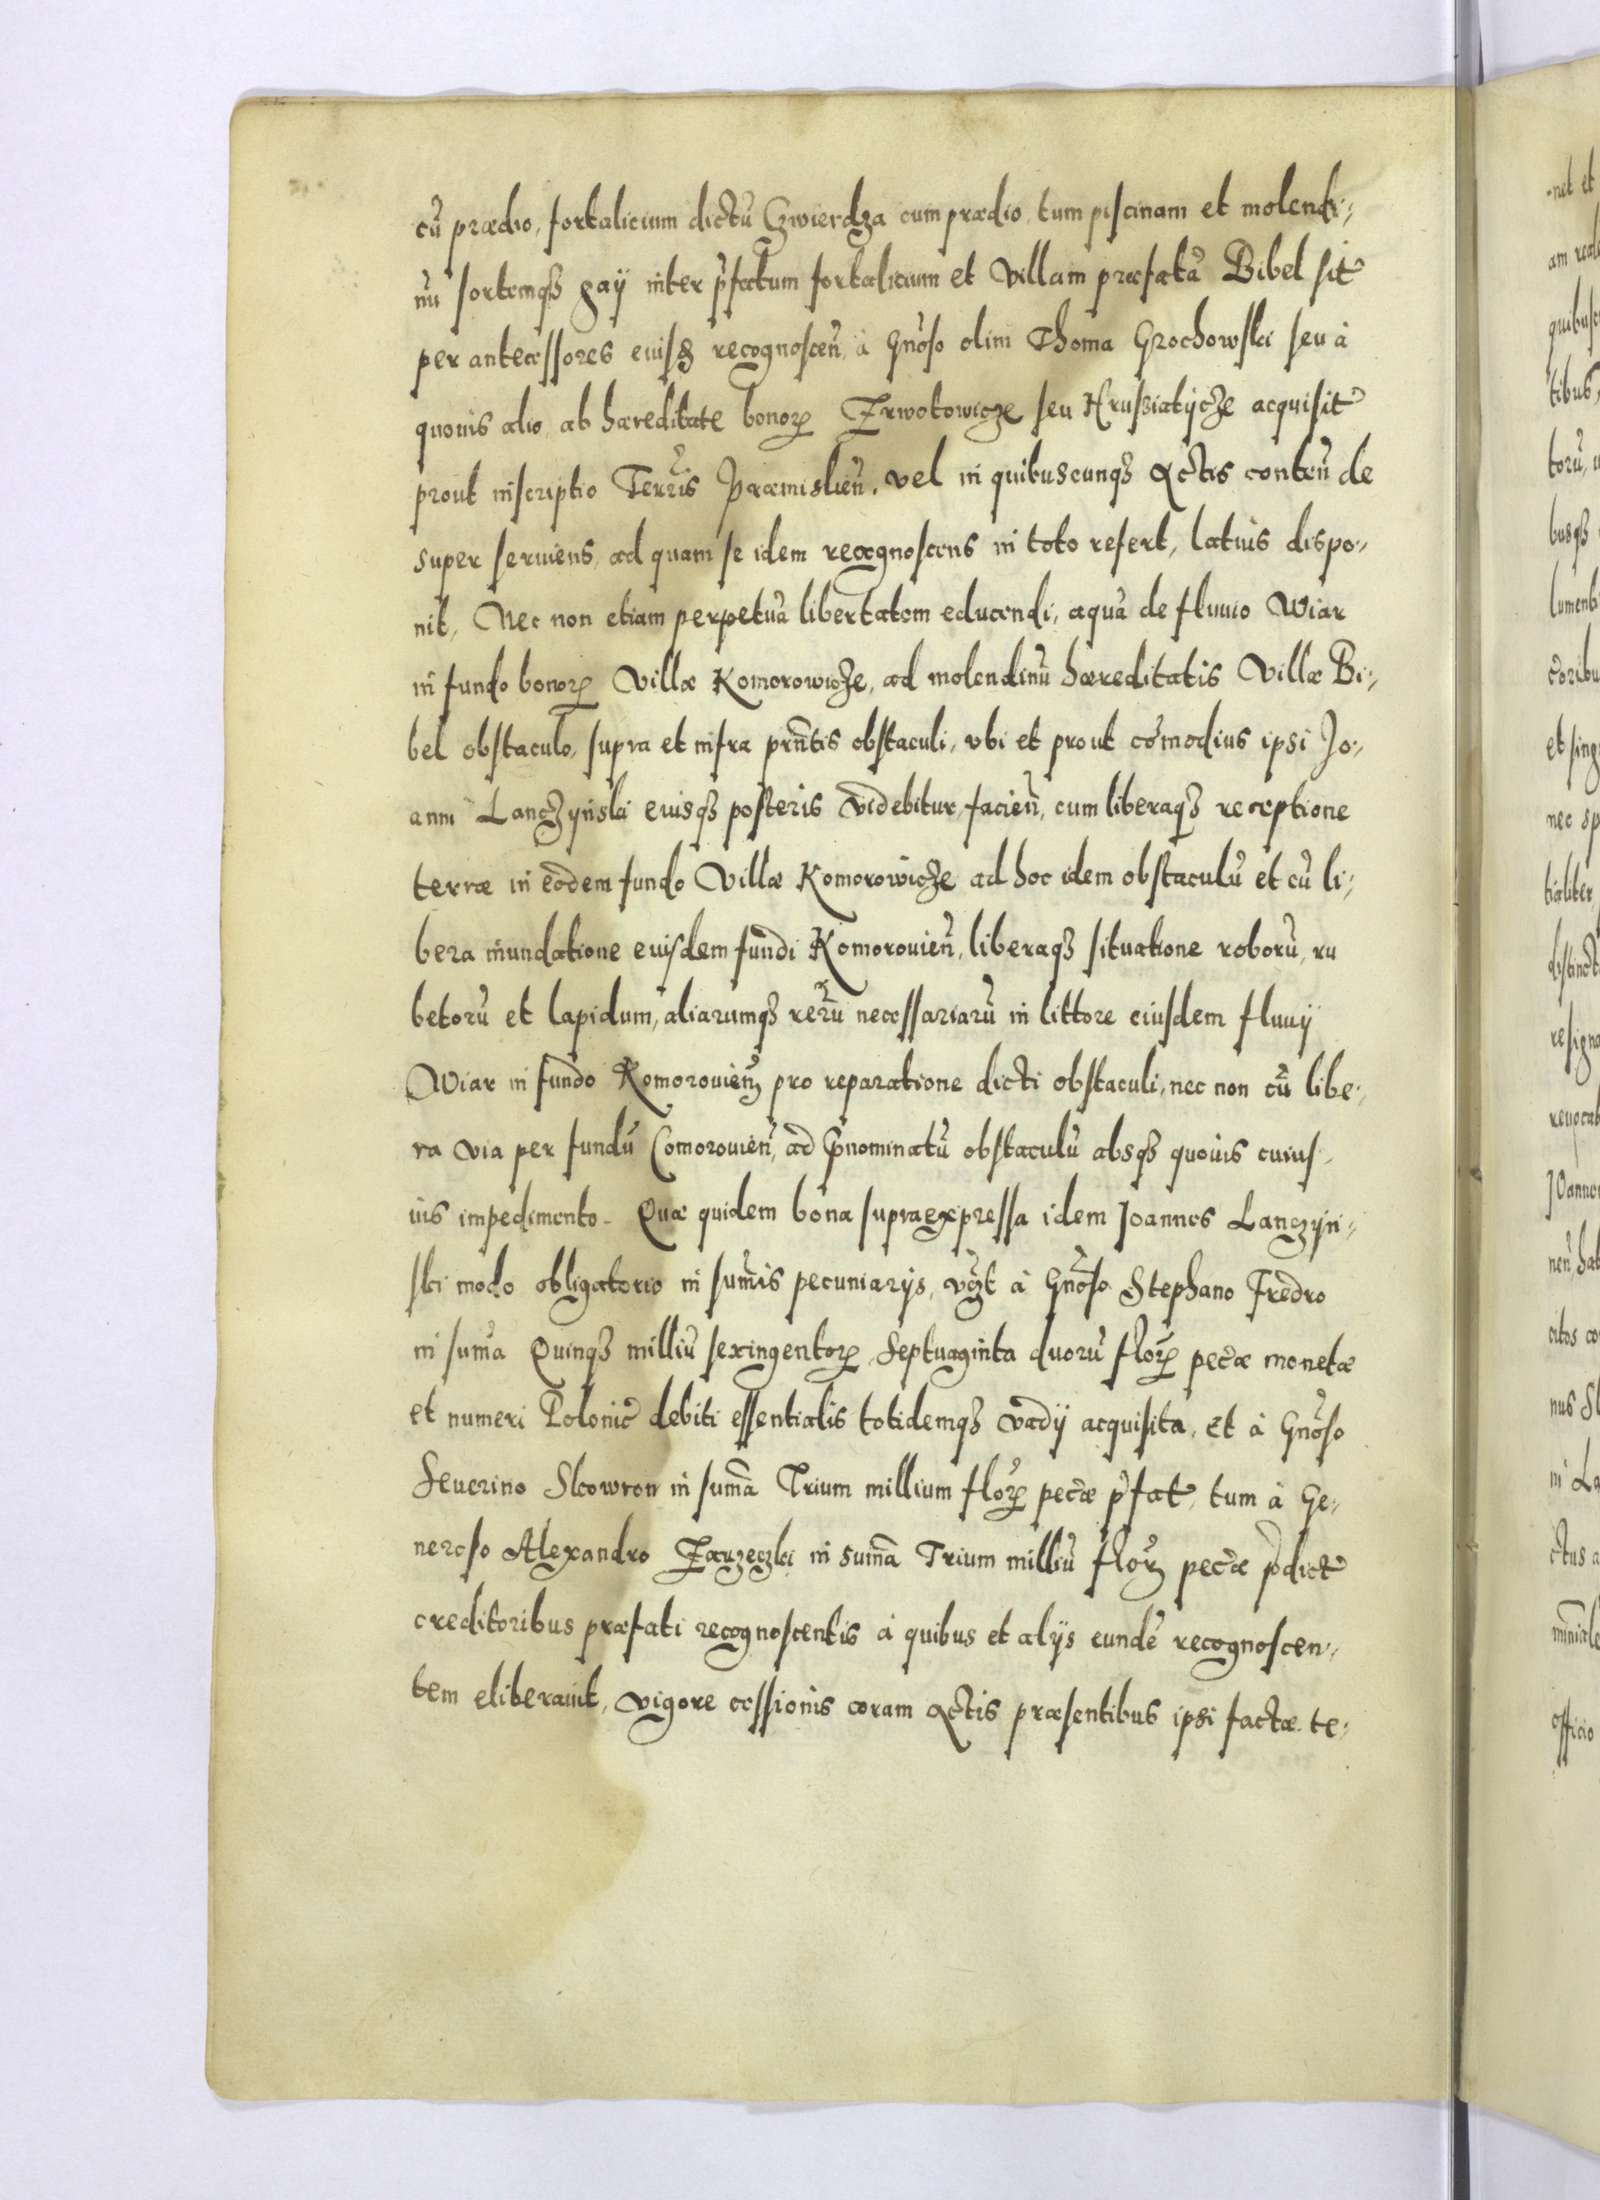 cū prædio, fortalicium dictū Czwierdza cum prædio, tum piscinam et molendi-
nū sortemqȝ gaÿ inter p̄fatum fortalicium et Villam præfatā Bibel sit
per antecessores eiusȝ recognoscen̄, à Gnōso olim Thoma Grochowski seu à
quovis alio, ab hæreditate bonoꝝ Zrwotowicze seu Hrusziatÿcze acquisit
prout inscriptio Terr̄is Præmislien̄. vel in quibuscunqȝ Actis conten̄ de
super serviens, ad quam se idem recognoscens in toto refert, latius dispo-
nit, Nec non etiam perpetuā libertatem educendi, aquā de fluuio Wiar
in fundo bonoꝝ Villæ Komorowicze, ad molendinū hæreditatis Villæ Bi-
bel obstaculo, supra et infra prn̄tis obstaculi, vbi et prout cōmodius ipsi Jo-
anni Lanczÿnski eiusqȝ posteris videbitur, facien̄, cum liberaqȝ receptione
terræ in eōdem fundo Villæ Komorowicze ad hoc idem obstaculū et cū li-
bera inundatione eiusdem fundi Komorouien̄, liberaqȝ situatione roborū, ru
betorū et lapidum, aliarumqȝ rer̄ū necessariarū in littore eiusdem fluuÿ
Wiar in fundo Komorouien̄ pro reparatione dicti obstaculi, nec non cū libe-
ra via per fundū Comorouien̄, ad p̄nominatū obstaculū absqȝ quouis cuius-
uis impedimento. Quæ quidem bona supraexpressa idem Joannes Lanczÿn-
ski modo obligatorio in sum̄is pecuniarÿs, vȝt à Gnōso Stephano Fredro
in sum̄a Quinqȝ milliū sexingentoꝝ Septuaginta duorū floꝝ pec̄æ monetæ
et numeri Polonic̄ debiti essentialis totidemqȝ vadÿ acquisita, et à Gnōso
Seuerino Skowron in sum̄a Trium millium floꝝ pec̄æ p̄fat, tum à Ge-
neroso Alexandro Zarzeczki in sum̄a Trium milliū floꝝ pec̄æ p̄dict
creditoribus præfati recognoscentis à quibus et alÿs eundē recognoscen-
tem eliberauit, vigore cessionis coram Actis præsentibus ipsi factæ te-